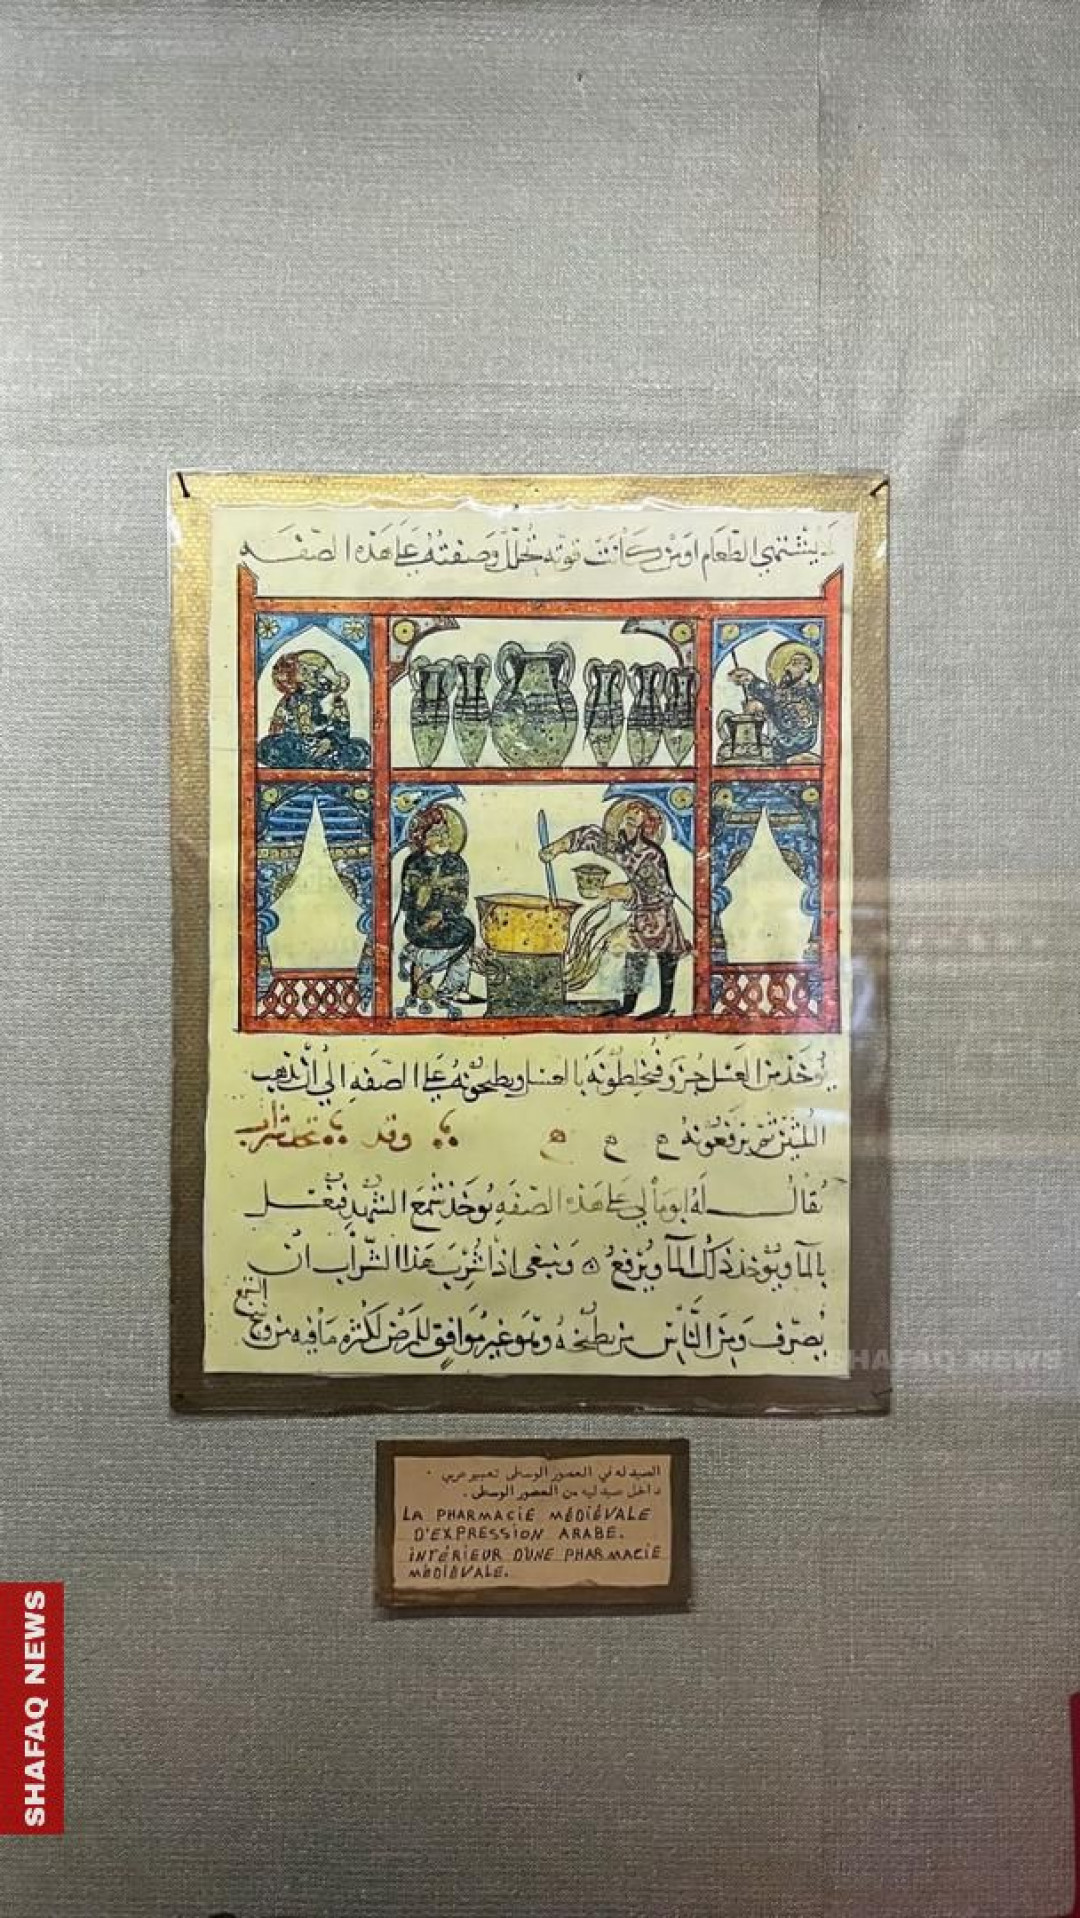 لا يشتهي الطعام او من كانت قوته تحلل وصنعته على هذه الصفه
يؤخذ من العسل جزو فيخلطونه بالعسل ويطبخونه على الصفه الى ان يذهب
ثم يرفعونه وقد شراب
يقال له على هذه الصفه يوخذ شمع الشهد فيغسل
بالما ويوخذ ذلك الما ويرفع ٥ وينبغي اذا شرب هذا الشراب ان
يصرف ومن الناس من يطبخه وهو غير موافق للمرض لكثره ما فيه من
الشمع
الصيدله في العصور الوسطى تعبير عربي .
داخل صيدليه من العصور الوسطى .
LA PHARMACIE MÉDIÉVALE
D'EXPRESSION ARABE.
INTÉRIEUR D'UNE PHARMACIE
MÉDIÉVALE.
SHAFAQ NEWS
SHAFAQ NEWS